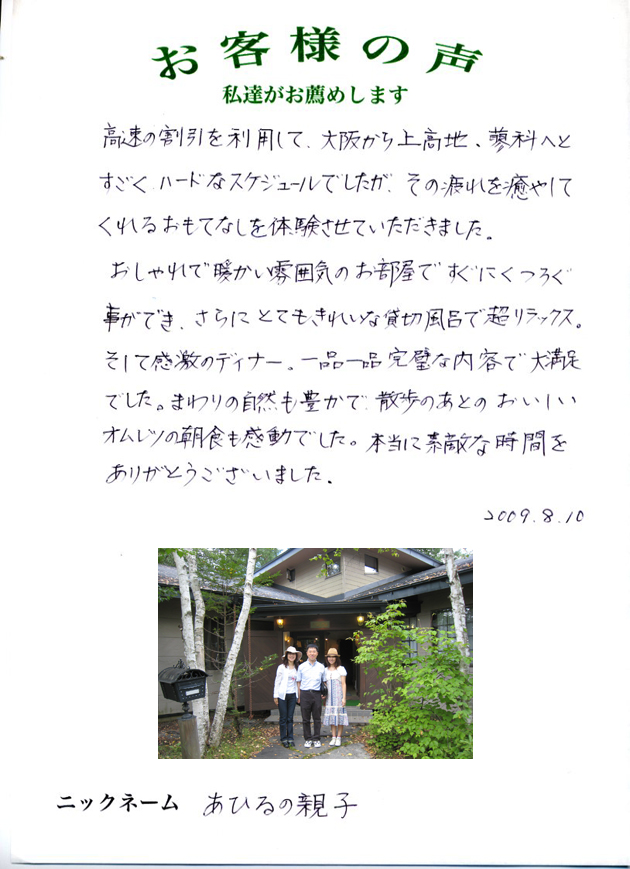 お客様の声
私達がお薦めします
高速の割引を利用して、大阪から上高地、蓼科へと
すごくハードなスケジュールでしたが、その疲れを癒やして
くれるおもてなしを体験させていただきました。
おしゃれで暖かい雰囲気のお部屋ですぐにくつろぐ
事ができ、さらにとてもきれいな貸切風呂で超リラックス。
そして感激のディナー。一品一品完璧な内容で大満足
でした。まわりの自然も豊かで、散歩のあとのおいしい
オムレツの朝食も感動でした。本当に素敵な時間を
ありがとうございました。
2009.8.10
ニックネーム あひるの親子